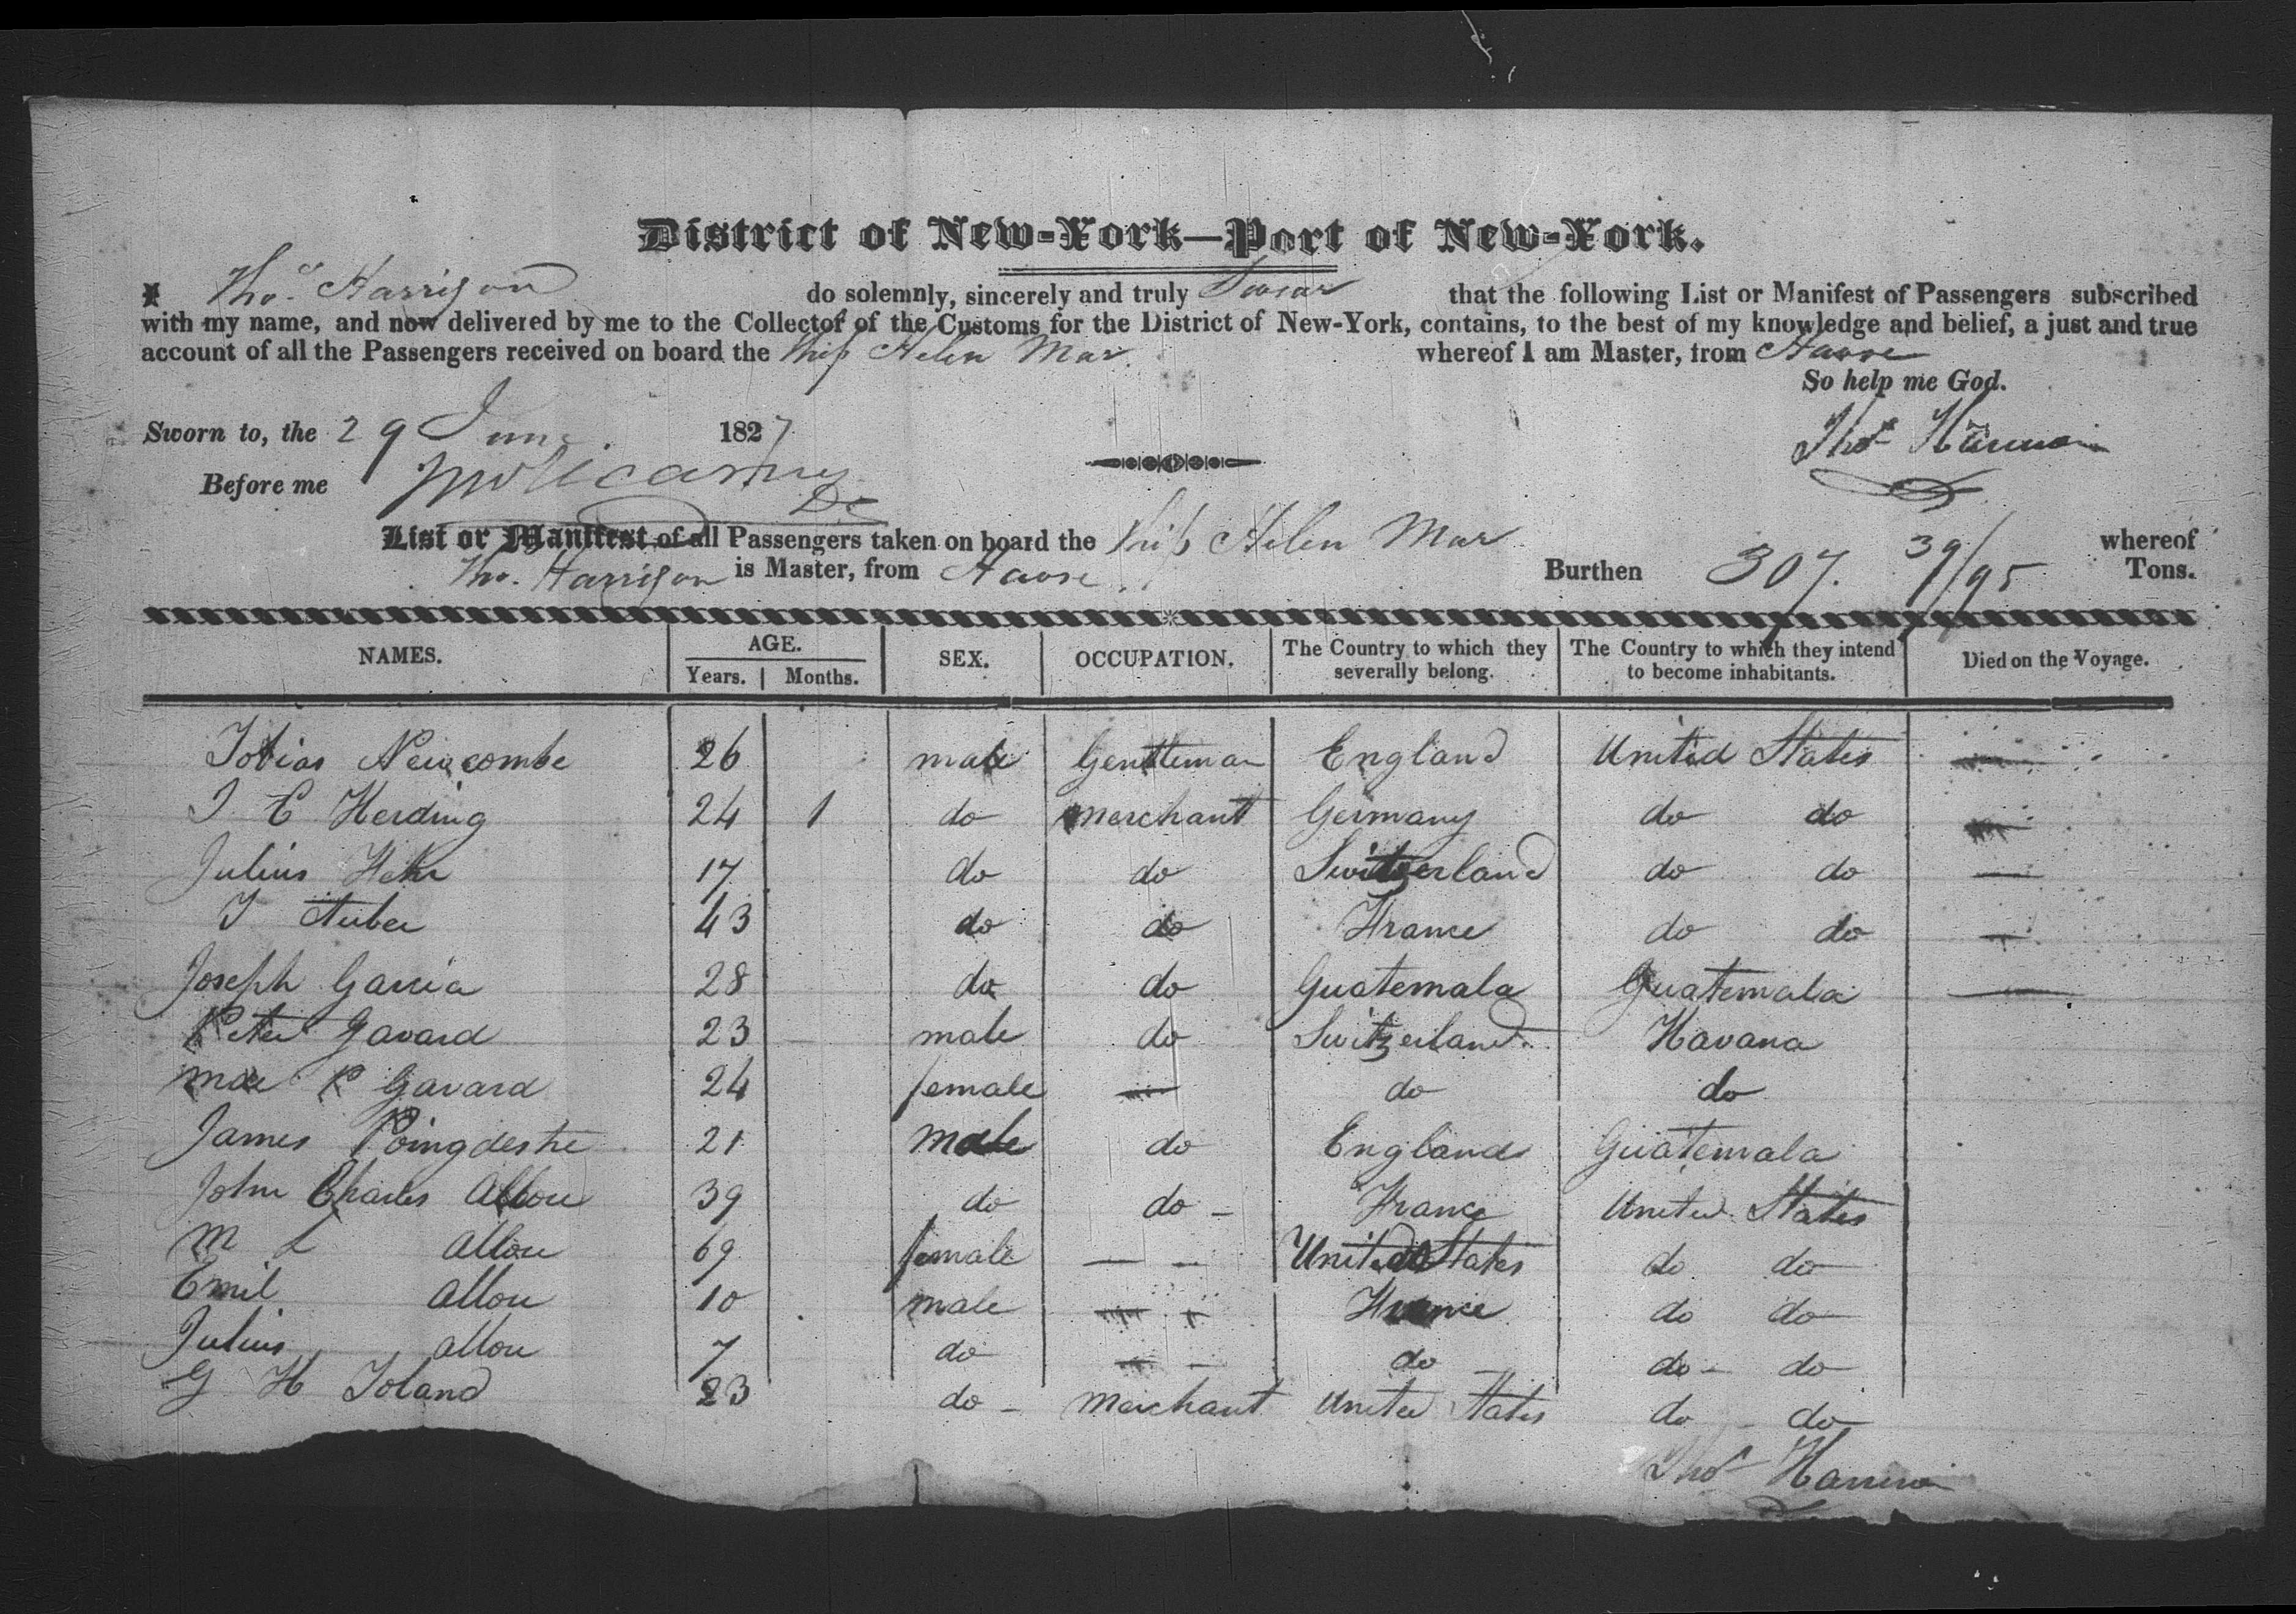 District of New-York—Port of New-York.
I Thos. Harrison do solemnly, sincerely and truly Swear that the following List or Manifest of Passengers subscribed
with my name, and now delivered by me to the Collector of the Customs for the District of New-York, contains, to the best of my knowledge and belief, a just and true
account of all the Passengers received on board the Ship Helen Mar. whereof I am Master, from Havre
So help me God.
Sworn to, the 29 June. 1827 Thos Harrison
Before me
DC
List or Manifest of all Passengers taken on board the Ship Helen Mar whereof
Tho. Harrison is Master, from Havre Burthen 307. 39/95 Tons.
NAMES. AGE. Years. Months. SEX. OCCUPATION. The Country to which they severally belong. The Country to which they intend to become inhabitants. Died on the Voyage.
Tobias Newcombe 26 male Gentleman England United States —
J C Herding 24 1 do merchant Germany do do —
Julius 17 do do Switzerland do do —
J 43 do do France do do —
Joseph Garcia 28 do do Guatemala Guatemala —
Peter Gavard 23 male do Switzerland Havana
Mde P Gavard 24 female — do do
James Poingdestre 21 male do England Guatemala
John Charles Allou 39 do do - France United States
M L Allou 69 female — - United States do do
Emil Allou 10 male — - France do do
Julius Allou 7 do — - do do - do
G H Toland 23 do - merchant United States do - do
Thos Harrison